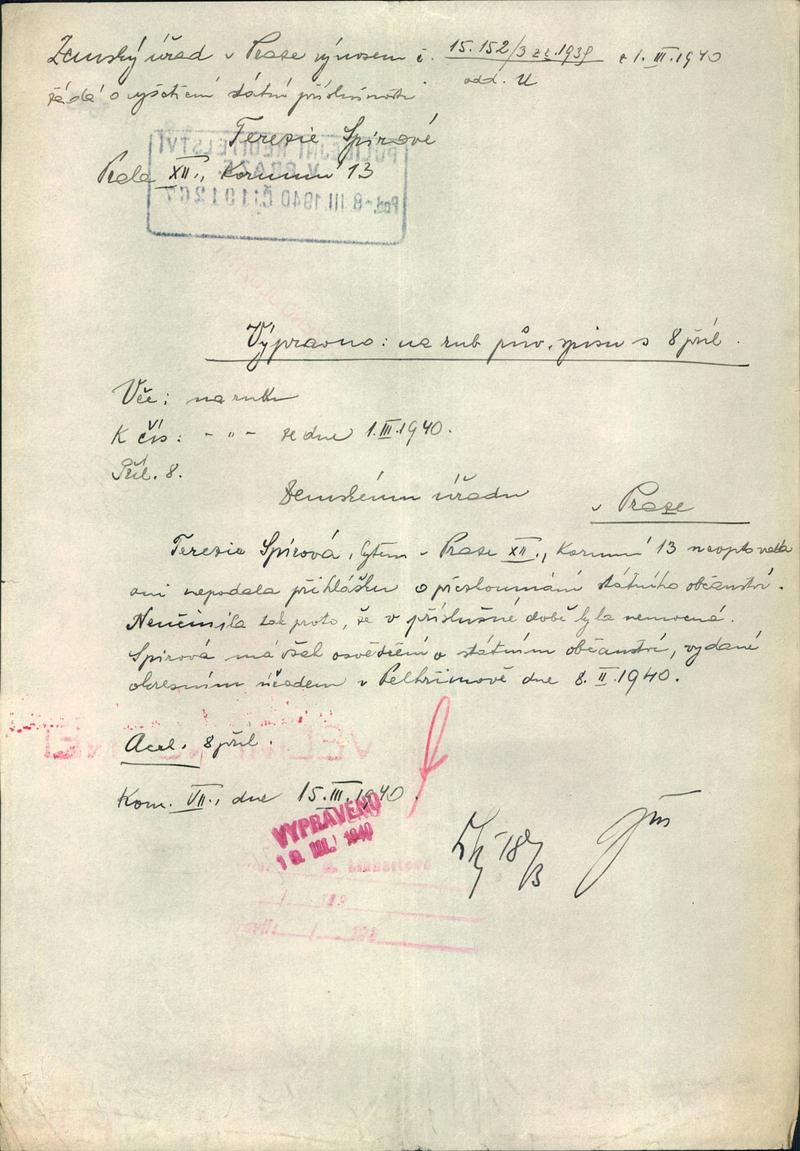 Zemský úřad v Praze výnosem č. 15.152/3 z r. 1939 z 1. III. 1940
odd. U
žádá o vyšetření státní příslušnosti
Terezie Spirové
Praha XII., Korunní 13
POLICEJNÍ ŘEDITELSTVÍ
V PRAZE
Pod. -8 III 1940 Č.j: 101267
Vypraviti: na rub pův. spisu s 8 příl.
Věc: na rubu
K čís: - " - ze dne 1. III. 1940.
Příl. 8.
Zemskému úřadu
v Praze
Terezie Spirová, bytem v Praze XII., Korunní 13 neoptovala
ani nepodala přihlášku o přezkoumání státního občanství.
Neučinila tak proto, že v příslušné době byla nemocná.
Spirová má však osvědčení o státním občanství, vydané
okresním úřadem v Pelhřimově dne 8. II. 1940.
Acel. 8 příl.
Kom. VII., dne 15. III. 1940.
VYPRAVENO
19. III. 1940
18/3